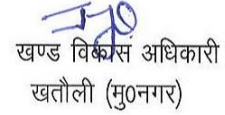 खण्ड विकास अधिकारी
खतौली (मु0नगर)